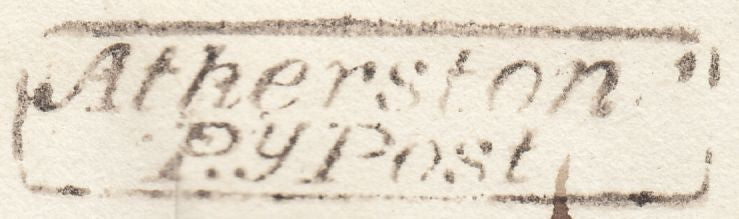 Atherston
P.y Post